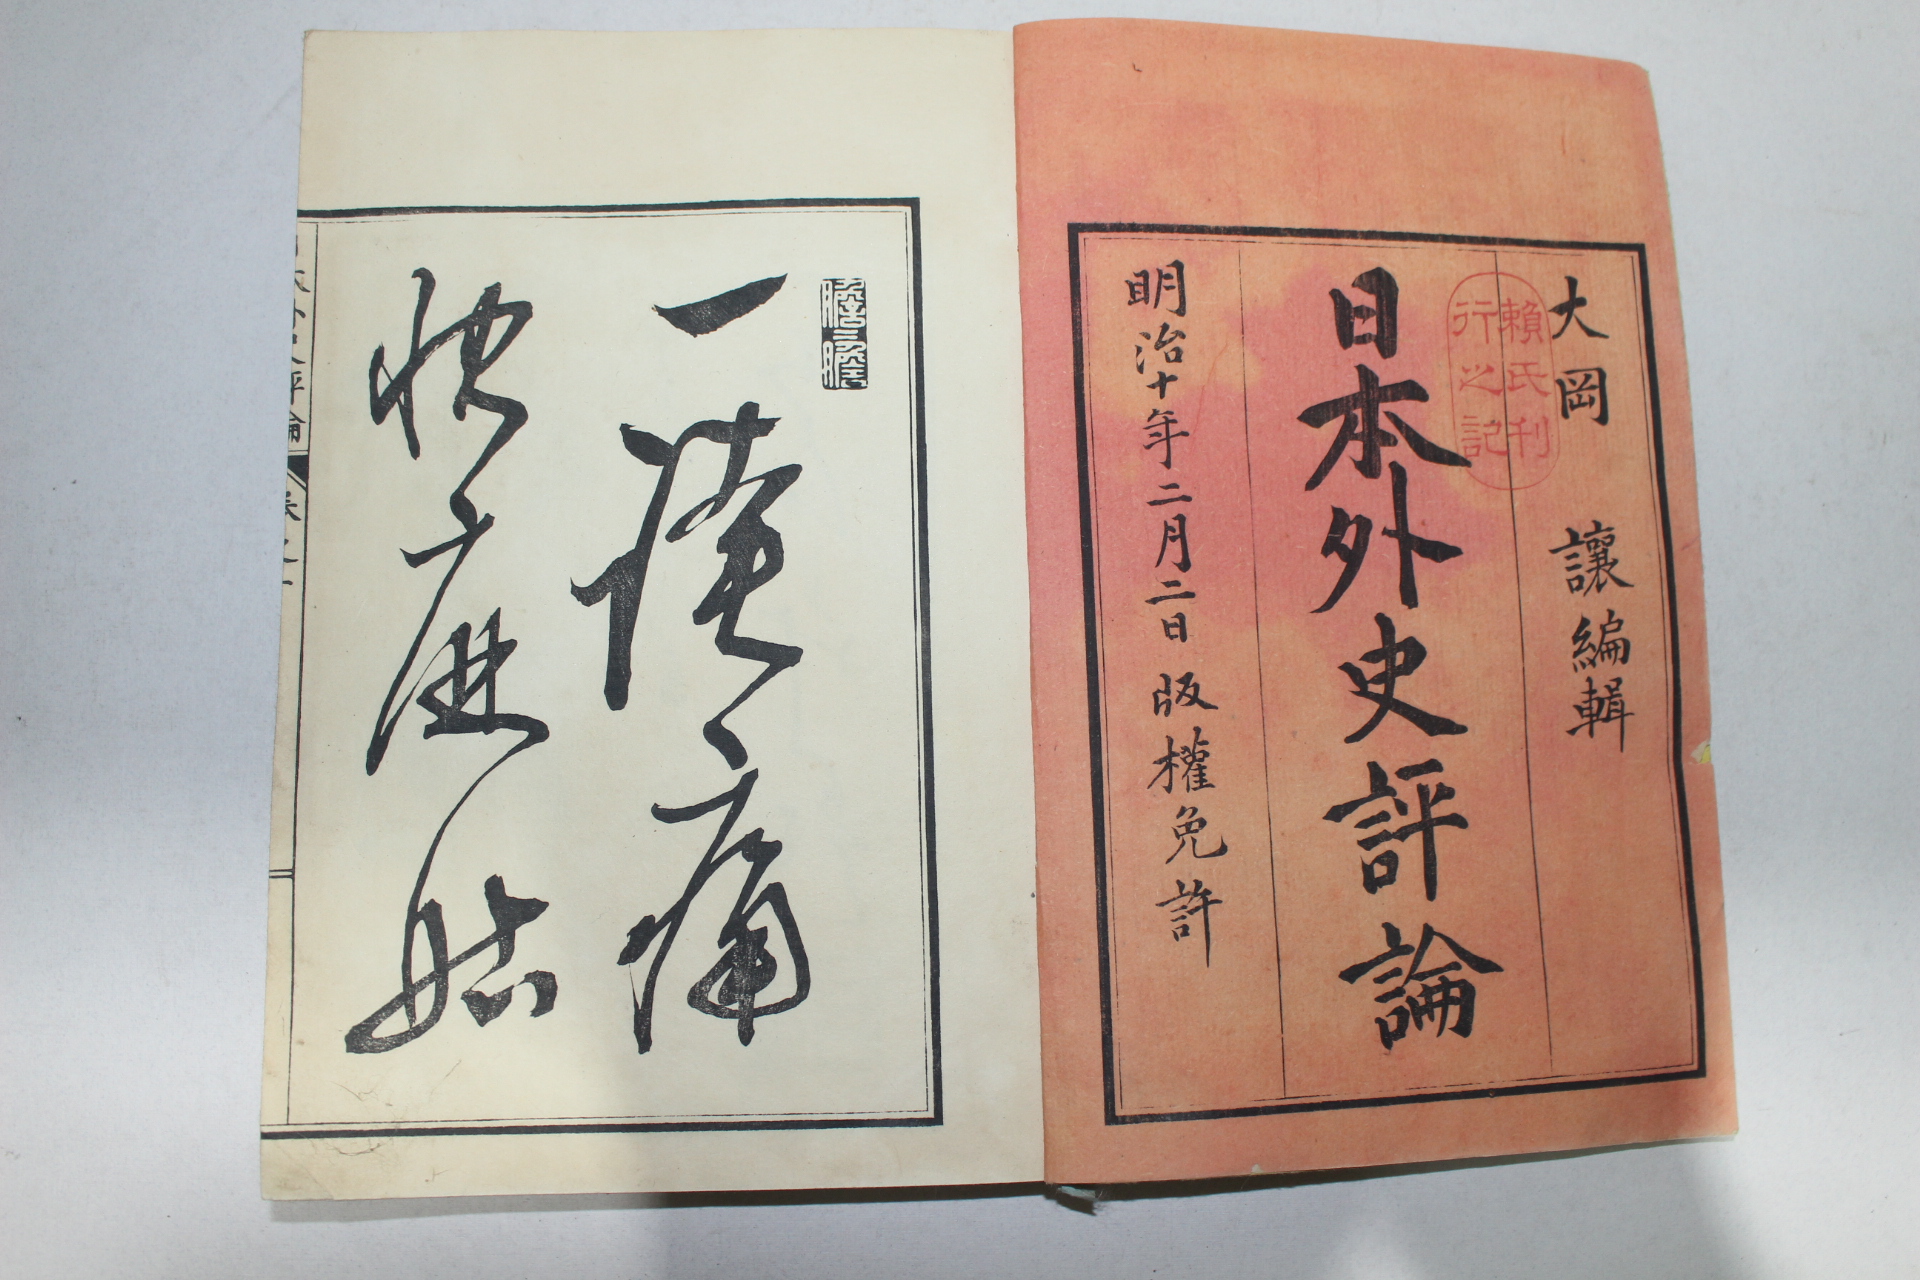 大岡 讓編輯
賴氏刊
行之記
日本外史評論
明治十年二月二日版權免許
一讀痛
快
日本外史評論